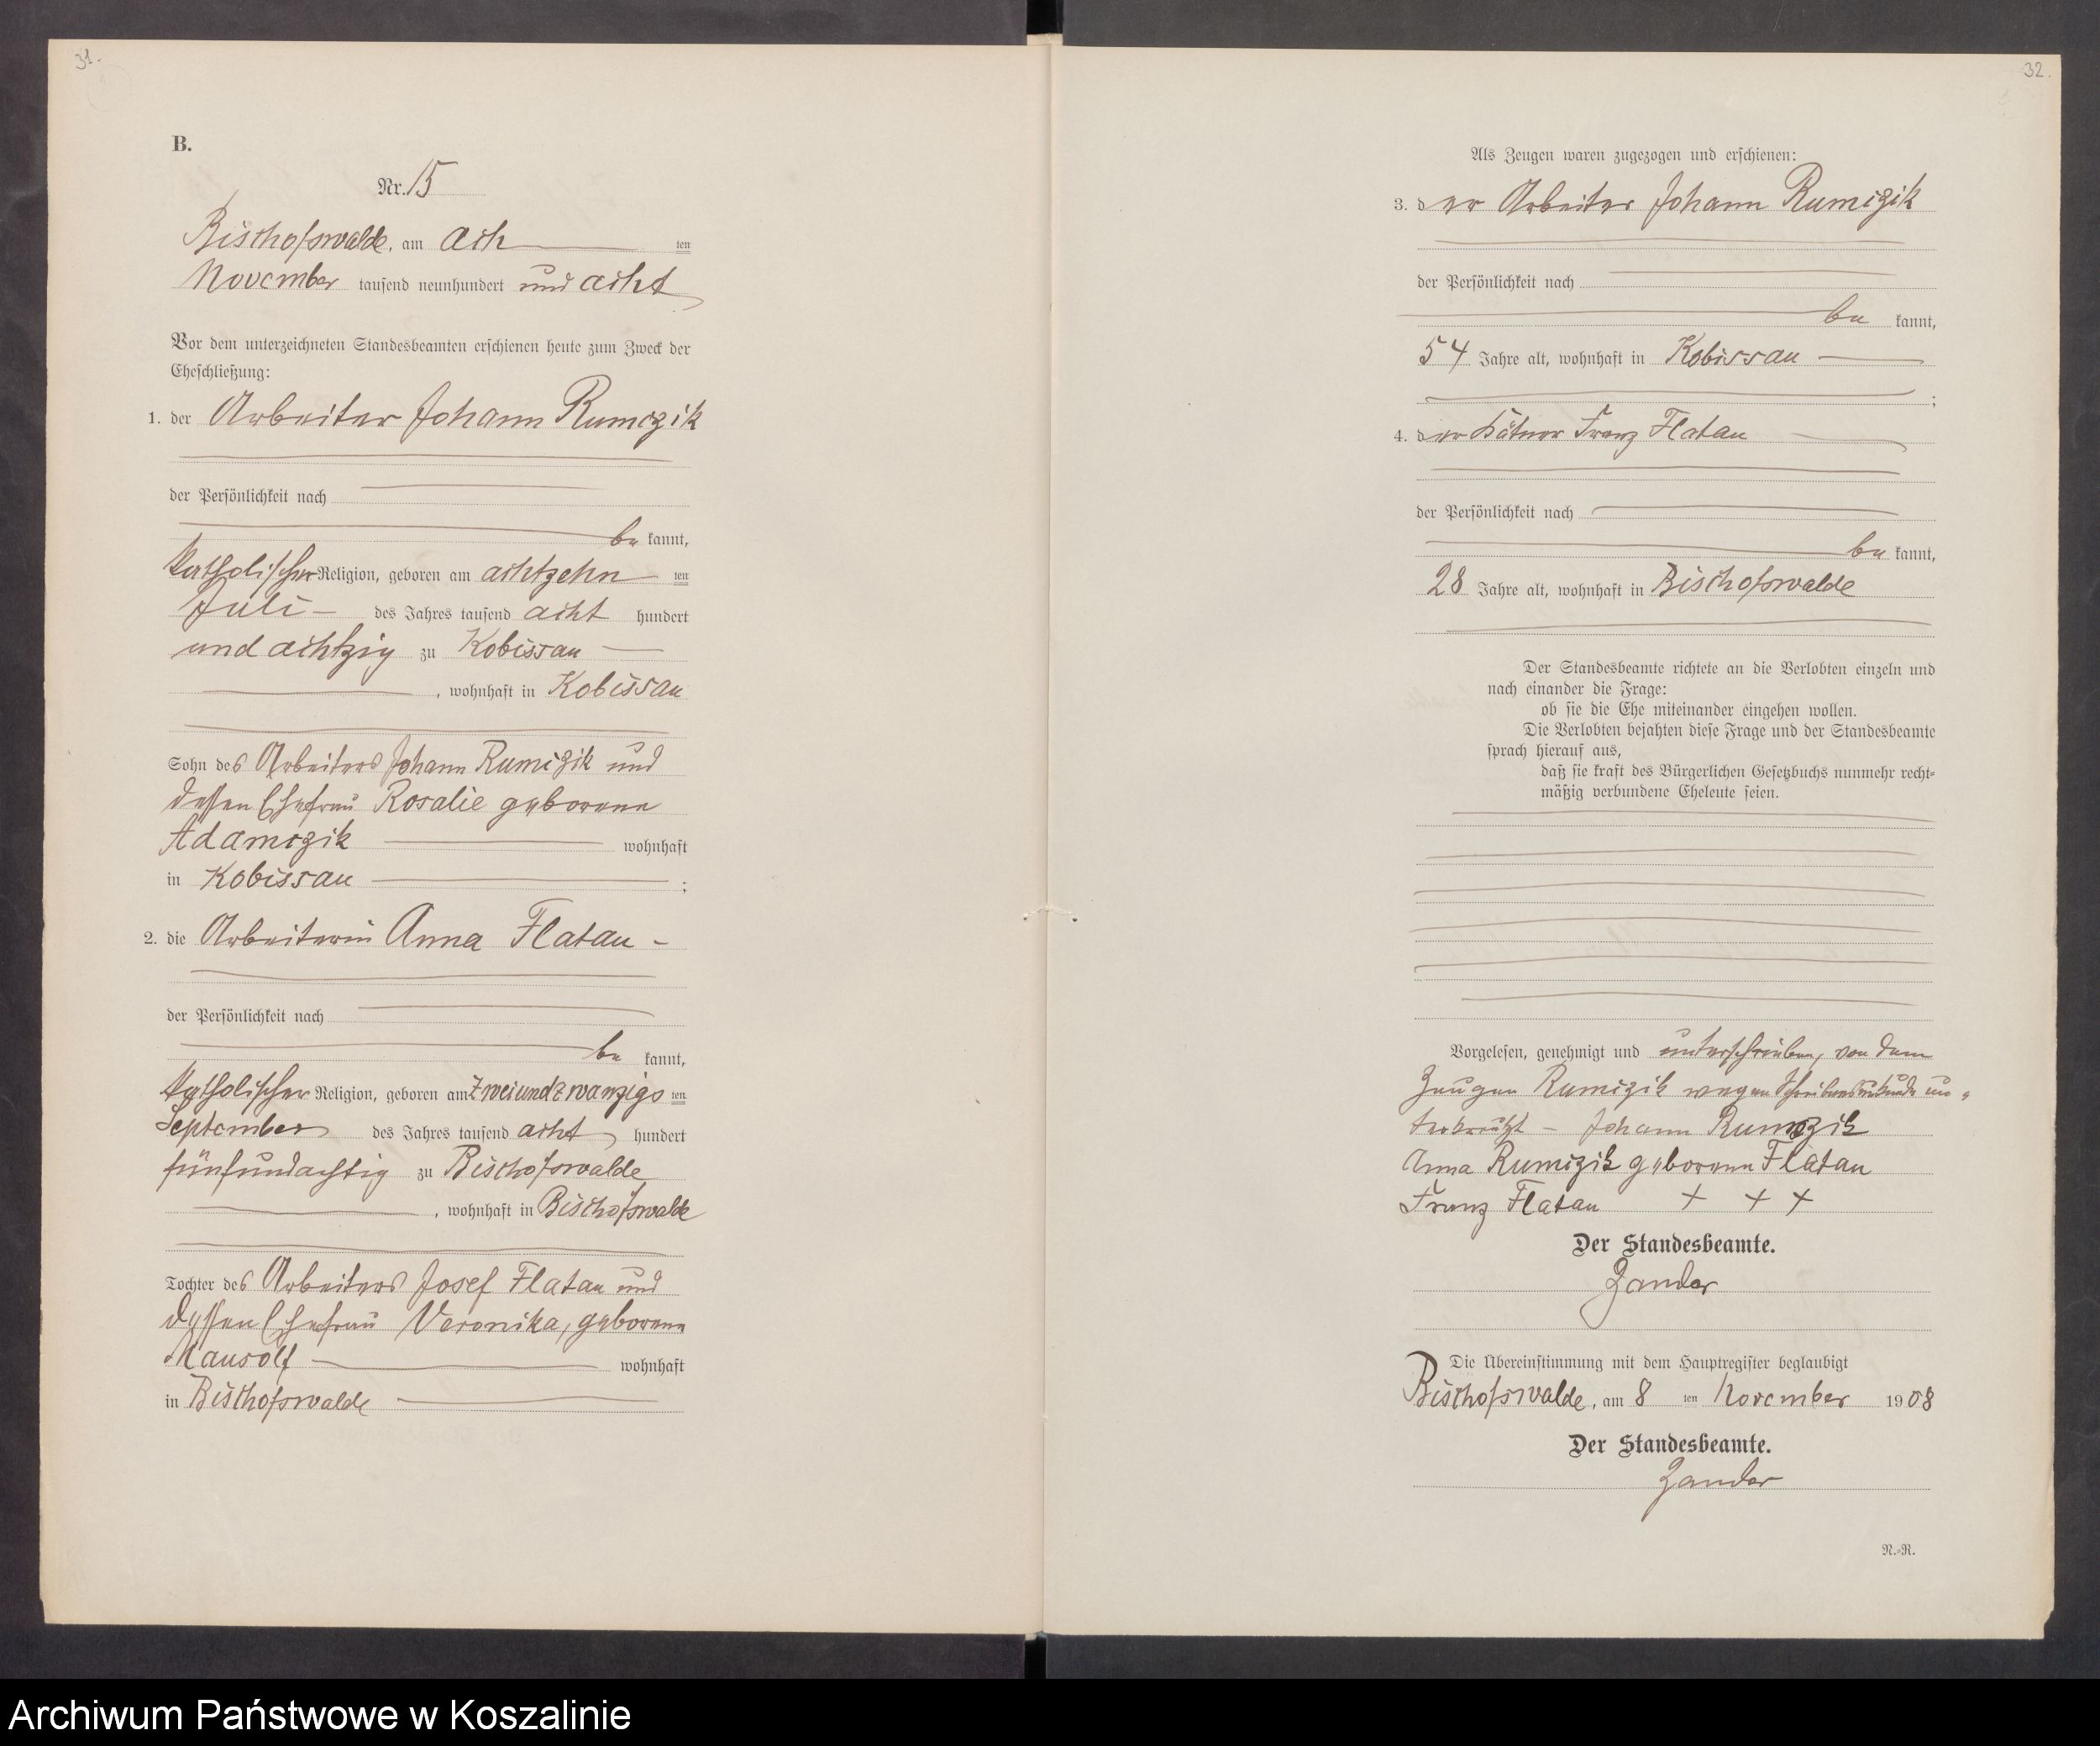 31.
B.
Nr. 15
Bischofswalde, am acht ten
November tausend neunhundert und acht
Vor dem unterzeichneten Standesbeamten erschienen heute zum Zweck der
Eheschließung:
1. der Arbeiter Johann Rumczik
der Persönlichkeit nach
be kannt,
katholischer Religion, geboren am achtzehn ten
Juli des Jahres tausend acht hundert
und achtzig zu Kobissau
, wohnhaft in Kobissau
Sohn des Arbeiters Johann Rumczik und
dessen Ehefrau Rosalie geborene
Adamczik wohnhaft
in Kobissau ;
2. die Arbeiterin Anna Flatau
der Persönlichkeit nach
be kannt,
katholischer Religion, geboren am zweiundzwanzigs ten
September des Jahres tausend acht hundert
fünfundachtig zu Bischofswalde
, wohnhaft in Bischofswalde
Tochter des Arbeiters Josef Flatau und
dessen Ehefrau Veronika, geborene
Mausolf wohnhaft
in Bischofswalde
32.
Als Zeugen waren zugezogen und erschienen:
3. der Arbeiter Johann Rumczik
der Persönlichkeit nach
be kannt,
54 Jahre alt, wohnhaft in Kobissau
;
4. der Kätner Franz Flatau
der Persönlichkeit nach
be kannt,
28 Jahre alt, wohnhaft in Bischofswalde
Der Standesbeamte richtete an die Verlobten einzeln und
nach einander die Frage:
ob sie die Ehe miteinander eingehen wollen.
Die Verlobten bejahten diese Frage und der Standesbeamte
sprach hierauf aus,
daß sie kraft des Bürgerlichen Gesetzbuchs nunmehr recht-
mäßig verbundene Eheleute seien.
Vorgelesen, genehmigt und unterschrieben, von dem
Zeugen Rumczik wegen Schreibensunkunde un-
terkreuzt - Johann Rumczik
Anna Rumczik geborene Flatau
Franz Flatau + + +
Der Standesbeamte.
Zander
Die Übereinstimmung mit dem Hauptregister beglaubigt
Bischofswalde, am 8 ten November 1908
Der Standesbeamte.
Zander
N.-R.
Archiwum Państwowe w Koszalinie